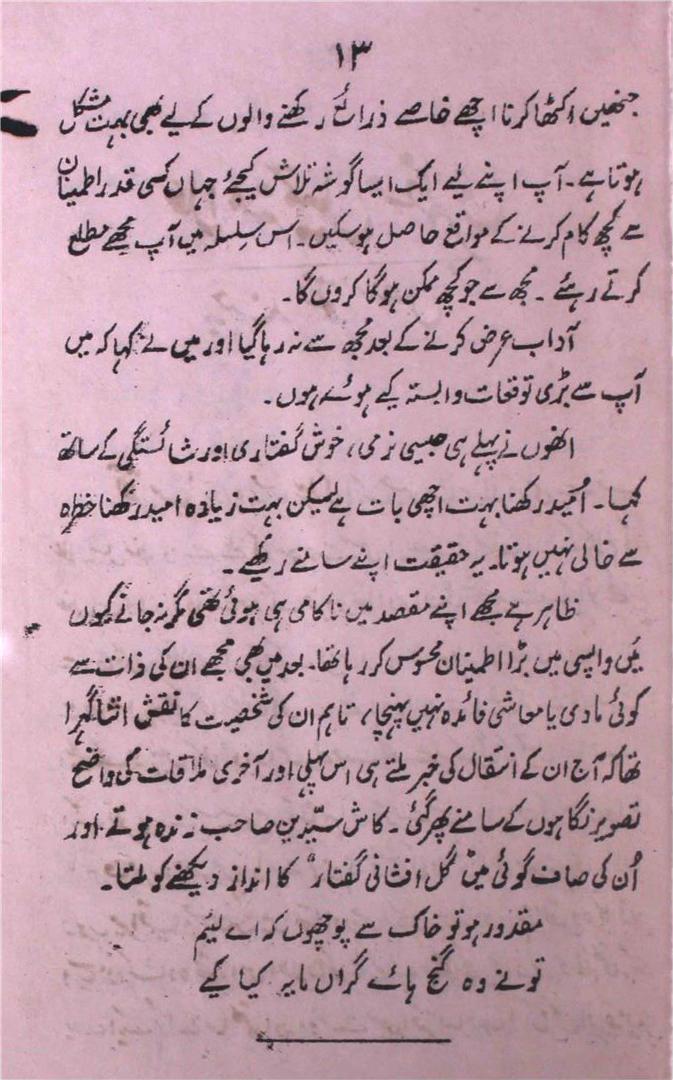 ۱۳
جنھیں اکٹھا کرنا اچھے خاصے ذرائع رکھنے والوں کے لیے بھی بہت مشکل
ہوتا ہے۔ آپ اپنے لیے ایک ایسا گوشہ تلاش کیجئے جہاں کسی قدر اطمینان
سے کچھ کام کرنے کے مواقع حاصل ہو سکیں۔ اس سلسلہ میں آپ مجھے مطلع
کرتے رہئے۔ مجھ سے جو کچھ ممکن ہوگا کروں گا۔
آداب عرض کرنے کے بعد مجھ سے نہ رہا گیا اور میں نے کہا کہ میں
آپ سے بڑی توقعات وابستہ کیے ہوئے ہوں۔
انھوں نے پہلے ہی جیسی نرمی، خوش گفتاری اور شائستگی کے ساتھ
کہا۔ اُمید رکھنا بہت اچھی بات ہے لیکن بہت زیادہ امید رکھنا خطرہ
سے خالی نہیں ہوتا۔ یہ حقیقت اپنے سامنے رکھیے۔
ظاہر ہے مجھے اپنے مقصد میں ناکامی ہی ہوئی تھی مگر نہ جانے کیوں
میں واپسی میں بڑا اطمینان محسوس کر رہا تھا۔ بعد میں بھی مجھے ان کی ذات سے
کوئی مادی یا معاشی فائدہ نہیں پہنچا، تاہم ان کی شخصیت کا نقش اتنا گہرا
تھا کہ آج ان کے انتقال کی خبر ملتے ہی اس پہلی اور آخری ملاقات کی واضح
تصویر نگاہوں کے سامنے پھر گئی۔ کاش سیّدین صاحب زندہ ہوتے اور
اُن کی صاف گوئی میں "گل افشانی گفتار" کا انداز دیکھنے کو ملتا۔
مقدور ہو تو خاک سے پوچھوں کہ اے لئیم
تو نے وہ گنج ہائے گراں مایہ کیا کیے